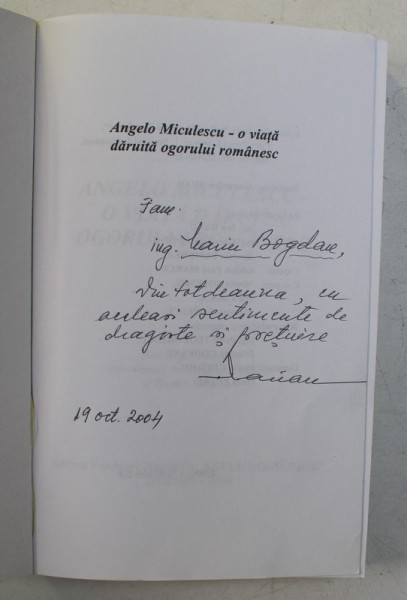 Angelo Miculescu - o viață
dăruită ogorului românesc
ing. Marin Bogdan,
Din totdeauna, cu
aceleași sentimente de
dragoste și prețuire
19 oct. 2004